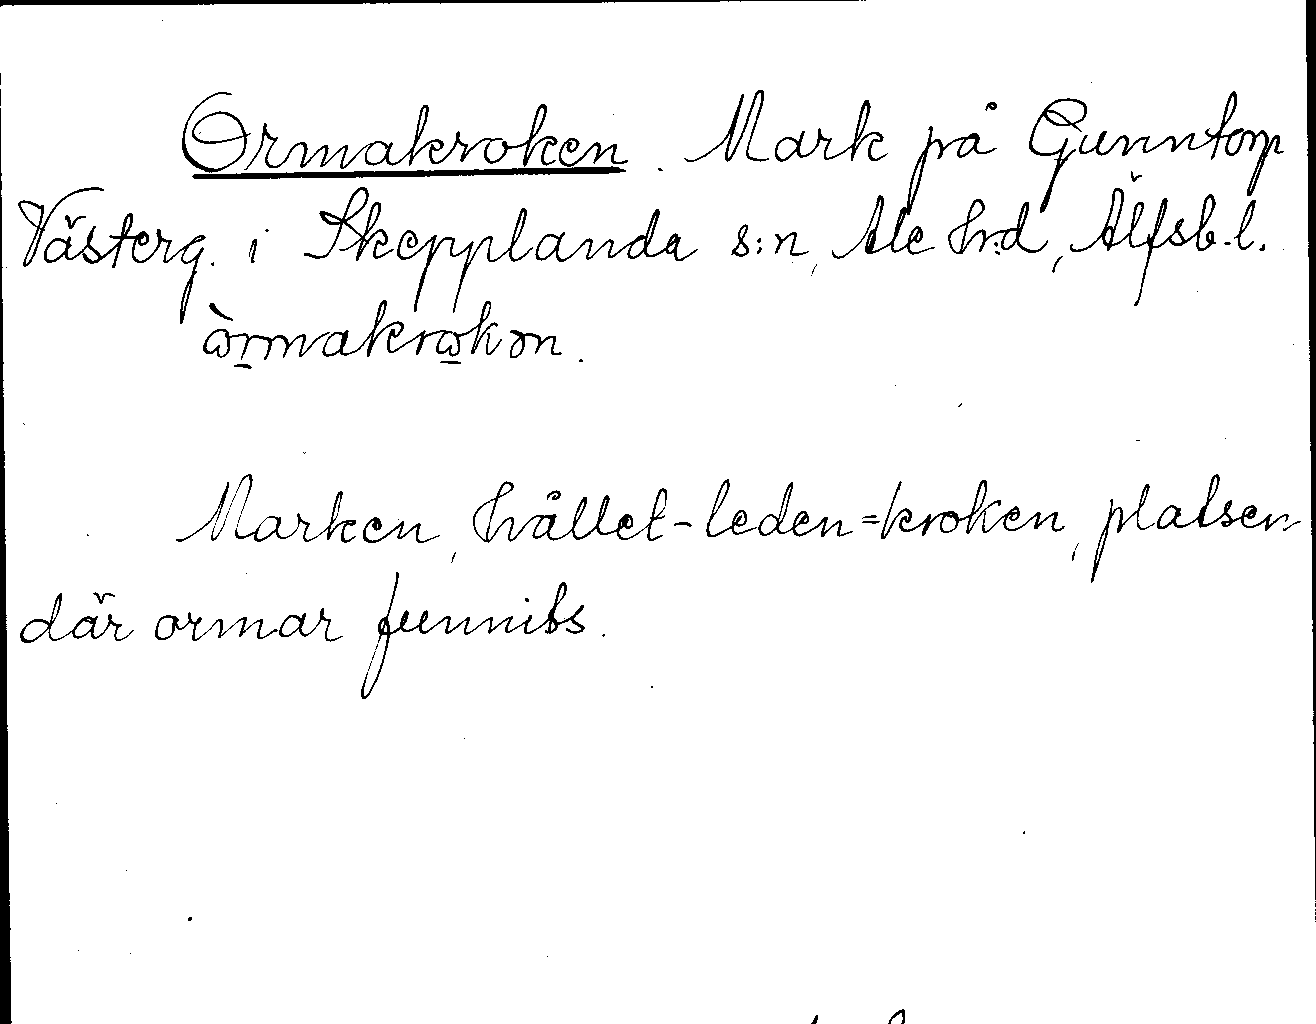 Ormakroken. Mark på Gunntorp
Västerg. i Skepplanda s:n, Ale hrd, Älfsb. l.
òrmakrokən.
Marken, hållet-leden=kroken, platsen
där ormar funnits.